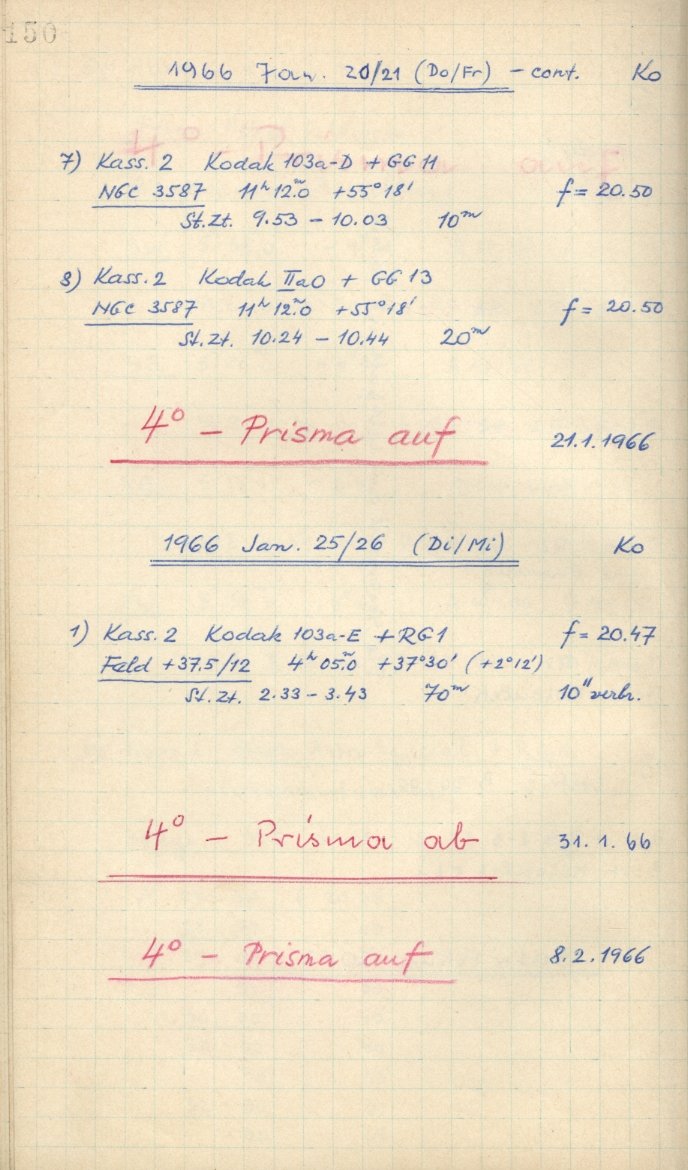 150
1966 Jan. 20/21 (Do/Fr) – cont. Ko
7) Kass. 2 Kodak 103a-D + GG 11
NGC 3587 11ʰ 12ᵐ.0 +55°18' f = 20.50
St.Zt. 9.53 – 10.03 10ᵐ
8) Kass. 2 Kodak IIaO + GG 13
NGC 3587 11ʰ 12ᵐ.0 +55°18' f = 20.50
St.Zt. 10.24 – 10.44 20ᵐ
4° – Prisma auf 21.1.1966
1966 Jan. 25/26 (Di/Mi) Ko
1) Kass. 2 Kodak 103a-E + RG1 f = 20.47
Feld +37.5/12 4ʰ 05ᵐ.0 +37°30' (+2°12')
St.Zt. 2.33 – 3.43 70ᵐ 10" verbr.
4° – Prisma ab 31.1.66
4° – Prisma auf 8.2.1966